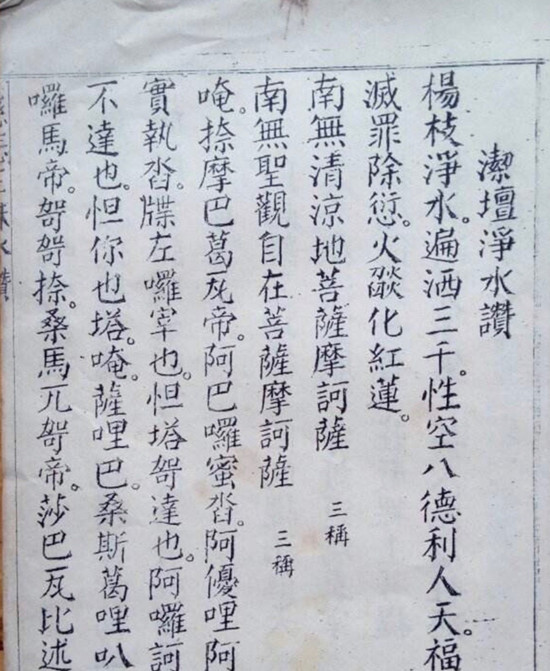 潔壇淨水讚
楊枝淨水。遍洒三千。性空八德利人天。福
滅罪除愆。火燄化紅蓮。
南無清涼地菩薩摩訶薩 三稱
南無聖觀自在菩薩摩訶薩 三稱
唵。捺摩巴葛瓦帝。阿巴囉蜜沓。阿優哩阿
實執沓。牒左囉宰也。怛塔哿達也。阿囉訶
不達也。怛你也塔。唵。薩哩巴。桑斯葛哩叭
囉馬帝。哿哿捺。桑馬兀哿帝。莎巴瓦比述